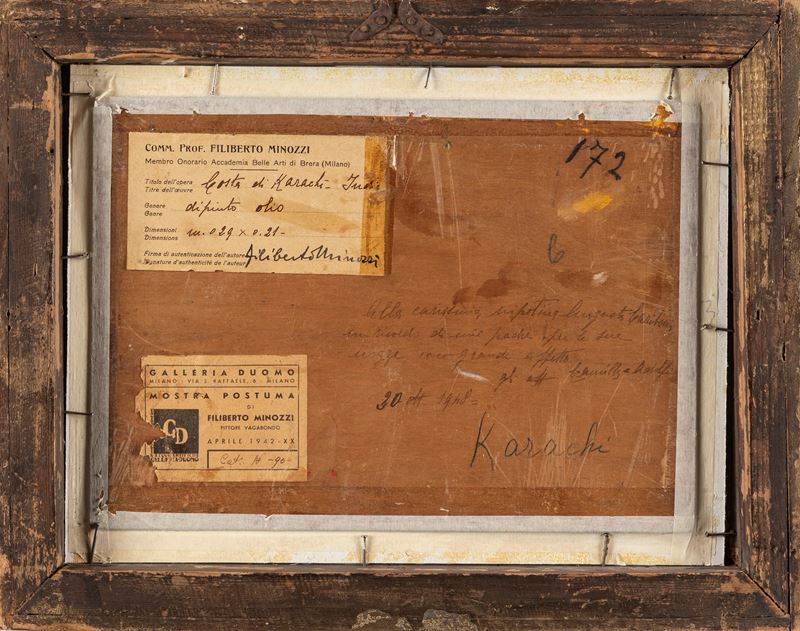 COMM. PROF. FILIBERTO MINOZZI
Membro Onorario Accademia Belle Arti di Brera (Milano)
Titolo dell'opera
Titre dell'œuvre
Costa di Karachi - Ind
Genere
Genre
dipinto olio
Dimensioni
Dimensions
m. 0.29 x 0.21 -
Firma di autenticazione dell'autore
Signature d'authenticité de l'auteur
Filiberto Minozzi
172
6
Alla carissima nipotina
in ricordo di mio padre per le sue
nozze con grande affetto
20 ott 1948 -
Karachi
GALLERIA DUOMO
MILANO · VIA S. RAFFAELE, 6 · MILANO
MOSTRA POSTUMA
DI
FILIBERTO MINOZZI
PITTORE VAGABONDO
APRILE 1942-XX
GD
Cat. A -90-